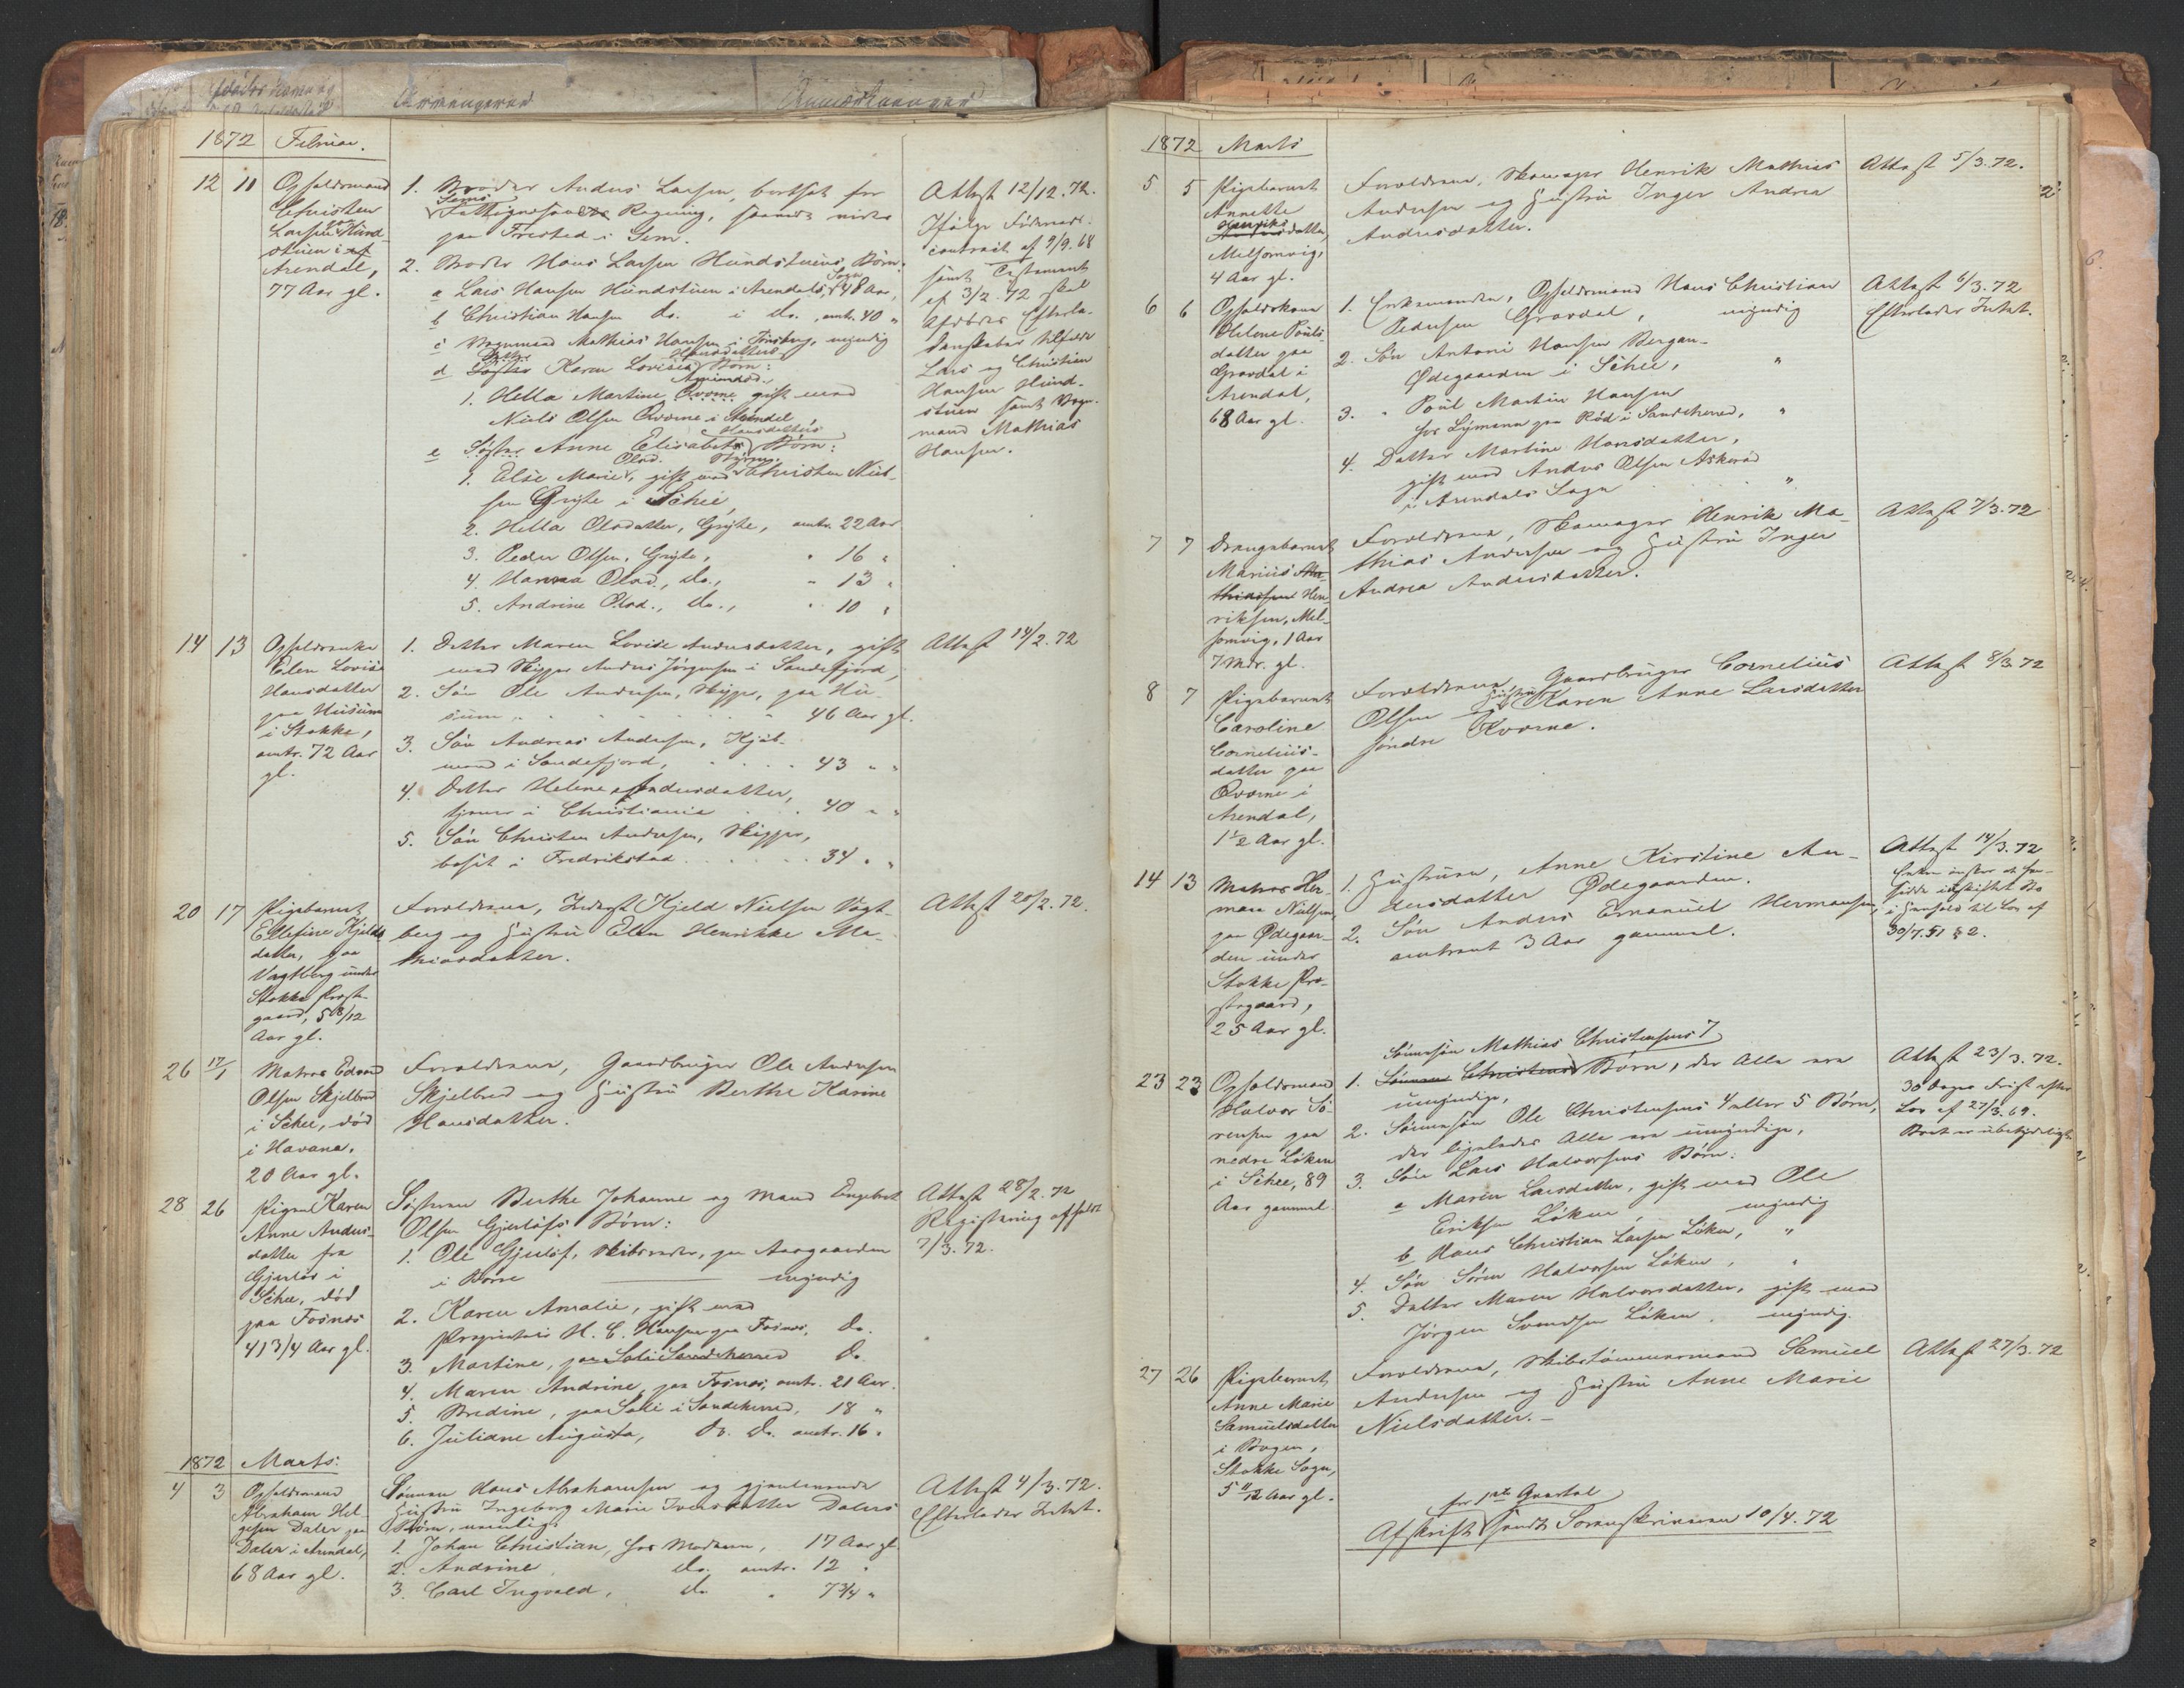 1872 Februar.
12 11 Opholdsmand
Christen
Larsen paa Hund-
stuen i
Arendal,
77 Aar gl.
1. Broder Anders Larsen, bortsat for
Sems
Fattigvæsens Regning,
paa Frested i Sem.
2. Broder Hans Larsen Hundstuens Børn:
a Lars Hansen Hundstuen i Arendals Sogn, 48 Aar,
b Christian Hansen do. i do., omtr. 40 "
c Vognmand Mathias Hansen i Tønsberg, myndig
d Datter Karen Lovises Hansdatters Børn:
1. Hella Martine Qværne gift med
Niels Olsen Qværne i Arendal,
e Søster Anne Elisabeth Hansdatters Børn:
1. Else Marie Olsd., gift med Christen Niel-
sen Gryte i Schee,
2. Hella Olsdatter, Gryte, omtr. 22 Aar
3. Peder Olsen, Gryte, " 16 "
4. Hanna Olsd., do., " 13 "
5. Andrine Olsd., do., " 10 "
Attest 12/12. 72.
Ifølge Føderaads-
contract af 9/9. 68
samt Testament
af 3/2. 72 skal
Afdødes Efterla-
denskaber tilfalde
Lars og Christian
Hansen Hund-
stuen samt Vogn-
mand Mathias
Hansen.
14 13 Opholdsenke
Elen Lovise
Hansdatter
paa Husum
i Stokke,
omtr. 72 Aar
gl.
1. Datter Maren Lovise Andersdatter, gift
med Skipper Anders Jørgensen i Sandefjord,
2. Søn Ole Andersen, Skipper, paa Hu-
sum, 46 Aar gl.
3. Søn Andreas Andersen, Kjøb-
mand i Sandefjord, 43 " "
4. Datter Helene Andersdatter,
tjener i Christiania 40 " "
5. Søn Christen Andersen, Skipper,
bosat i Fredrikstad 34 " "
Attest 14/2. 72
20 17 Pigebarnet
Ellefine Kjelds-
datter, paa
Vagtberg under
Stokke Præste-
gaard, 5 8/12
Aar gl.
Forældrene, Inderst Kjeld Nielsen Vagt-
berg og Hustru Elen Henrikke Ma-
thiasdatter.
Attest 20/2. 72.
26 17/1 Matros Edvard
Olsen Skjelbred
i Schee, død
i Havana,
20 Aar gl.
Forældrene, Gaardbruger Ole Andersen
Skjelbred og Hustru Berthe Karine
Hansdatter.
28 26 Pigen Karen
Anne Anders-
datter fra
Gjerløs i
Schee, død
paa Fosnæs
41 3/4 Aar gl.
Søsteren Berthe Johanne og Mand Engebret
Olsen Gjerløss Børn:
1. Ole Gjerløs, Skibsreder, paa Aasgaarden
i Borre myndig
2. Karen Amalie, gift med
Proprietær H. C. Hansen paa Fosnæs, do.
3. Martine, paa Solie i Sandeherred do
4. Maren Andrine, paa Fosnæs, omtr. 21 Aar.
5. Bredine, paa Solie i Sandeherred, 18 "
6. Juliane Augusta, do. do. omtr. 16 "
Attest 28/2. 72
Registrering afholdt
7/3. 72.
1872 Marts:
4 3 Opholdsmand
Abraham Hel-
gesen Dalen paa
Dalen i Arendal,
68 Aar gl.
Sønnen Hans Abrahamsen og gjenlevende
Hustru Ingeborg Marie Iversdatter Dalens
Børn, nemlig:
1. Johan Christian, hos Moderen, 17 Aar gl.
2. Andrine do. omtr. 12 "
3. Carl Ingvald, do " 7 3/4 "
Attest 4/3. 72.
Efterlader Intet.
1872 Marts
5 5 Pigebarnet
Annette
Henriks
datter,
Melsomvig,
4 Aar gl.
Forældrene, Skomager Henrik Mathias
Andersen og Hustru Inger Andrea
Andersdatter.
Attest 5/3. 72.
6 6 Opholdskone
Helene Pouls-
datter paa
Gravdal i
Arendal,
68 Aar gl.
1. Enkemanden, Opholdsmand Hans Christian
Pedersen Gravdal, myndig
2. Søn Antoni Hansen Bergan-
Ødegaarden i Schee, "
3. " Poul Martin Hansen
hos Lymann paa Rød i Sandeherred, "
4. Datter Martine Hansdatter,
gift med Anders Olsen Askerød
i Arendals Sogn "
Attest 6/3. 72
Efterlader Intet.
7 7 Drengebarnet
Marius Ma-
thiassen Hen-
riksen, Mel-
somvig, 1 Aar
7 Mdr. gl.
Forældrene, Skomager Henrik Ma-
thias Andersen og Hustru Inger
Andrea Andersdatter.
Attest 7/3. 72
8 7 Pigebarnet
Caroline
Cornelius-
datter paa
Qværne i
Arendal,
1 1/2 Aar gl.
Forældrene, Gaardbruger Cornelius
Olsen og Hustru Karen Anne Larsdatter
søndre Kværne.
Attest 8/3. 72
14 13 Matros Her-
man Nielsen
paa Ødegaar-
den under
Stokke Præ-
stegaard,
25 Aar gl.
1. Hustruen, Anne Kirstine An-
dersdatter Ødegaarden.
2. Søn Anders Emanuel Hermansen,
omtrent 3 Aar gammel.
Attest 14/3. 72
Enken ønsker at hen-
sidde i uskiftet Bo
i Henhold til Lov af
30/7. 51 § 2.
23 23 Opholdsmand
Halvor Sø-
rensen paa
nedre Løken
i Schee, 89
Aar gammel.
Sønnesøn Mathias Christensens 7
1. Sønnen Christens Børn, der Alle ere
umyndige,
2. Sønnesøn Ole Christensens 4 eller 5 Børn,
der ligeledes Alle ere umyndige,
3. Søn Lars Halvorsens Børn:
a Maren Larsdatter, gift med Ole
Eriksen Løken, myndig
b Hans Christian Larsen Løken, "
4. Søn Søren Halvorsen Løken, "
5. Datter Maren Halvorsdatter, gift med
Jørgen Svendsen Løken, myndig.
Attest 23/3. 72.
30 Dages Frist efter
Lov af 27/3. 69.
Boet er ubetydeligt.
27 26 Pigebarnet
Anne Marie
Samuelsdatter
i Bogen,
Stokke Sogn,
5 11/12 Aar gl.
Forældrene, Skibstømmermand Samuel
Andersen og Hustru Anne Marie
Nielsdatter.
Attest 27/3. 72
for 1ste Qvartal
Afskrift sendt Sorenskriveren 10/4. 72